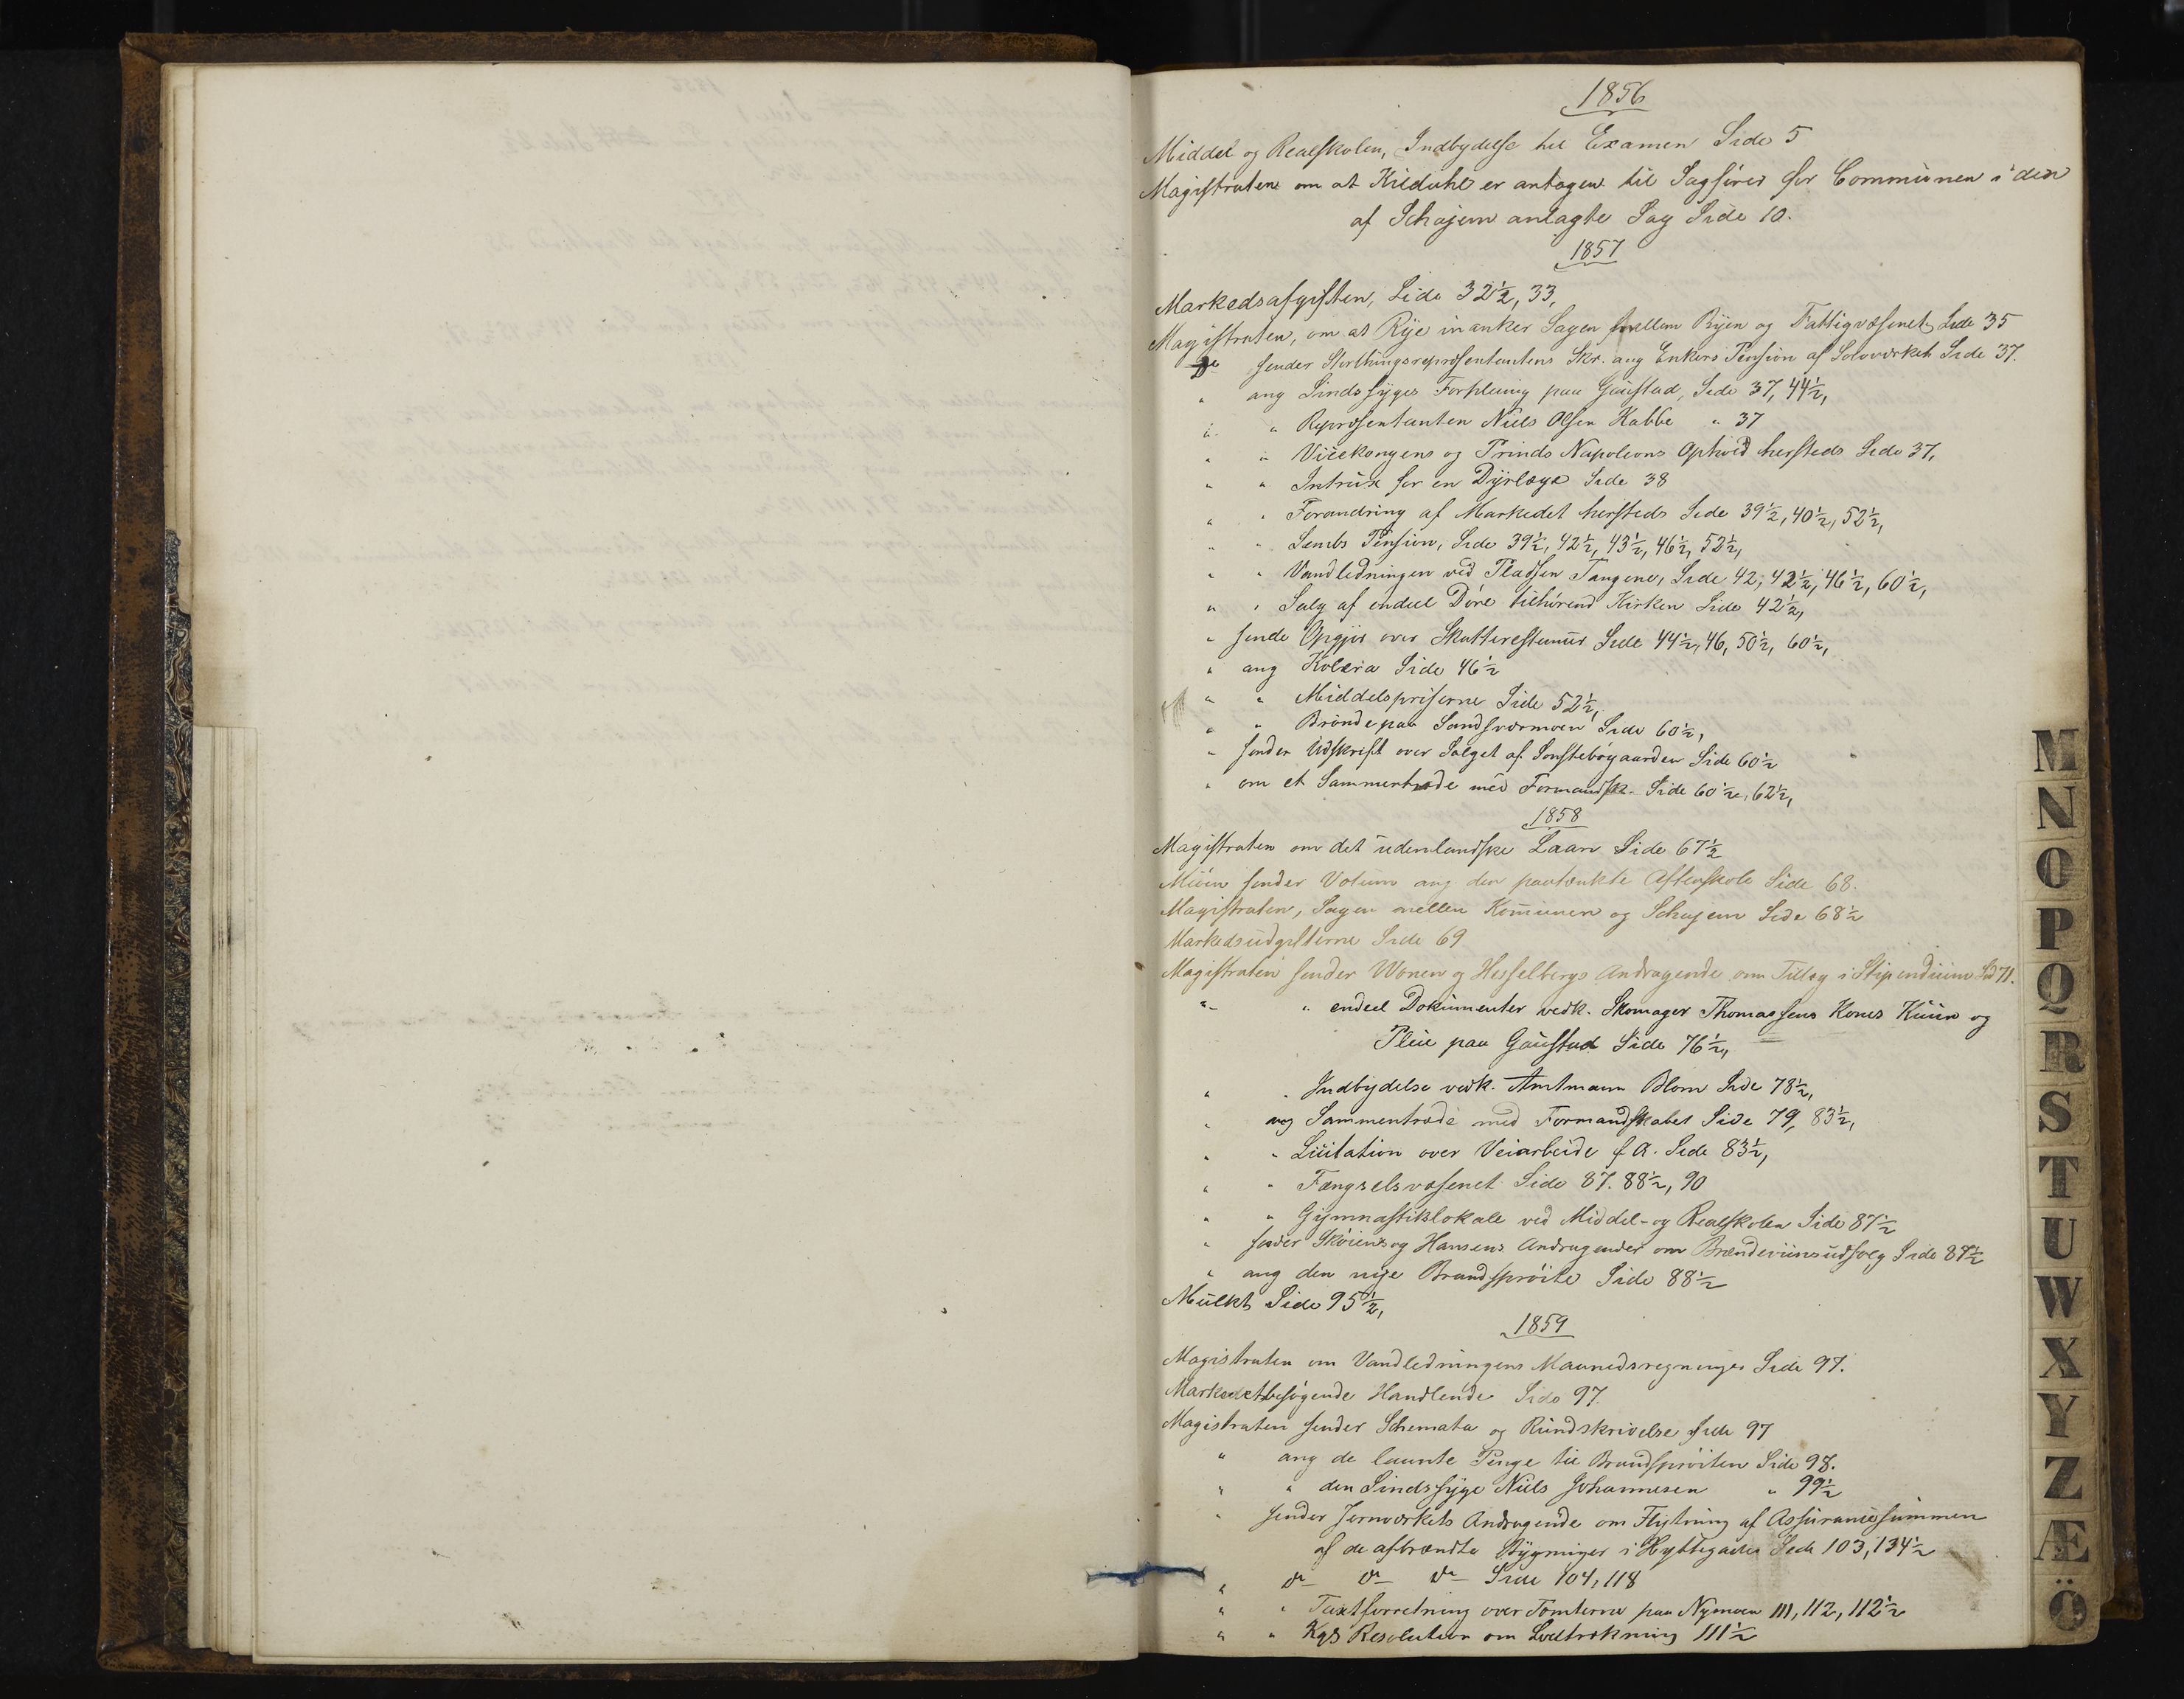 1856
Middel og Realskolen, Indbydelse til Examen Side 5
Magistraten om at Kildahl er antagen til Sagfører for Communen i den
af Schajem anlagte Sag Side 10.
1857
Markedsafgiften, Side 32½, 33,
Magistraten, om at Rye inanker Sagen mellem Byen og Fattigvæsenet Side 35
do sender Storthingsrepræsentantens Skr. ang Enkers Pension af Sølvværket Side 37.
" ang Sindssyges Forpleining paa Gaustad, Side 37, 44½,
" " Repræsentanten Niels Olsen Kabbe " 37
" " Vicekongens og Prinds Napoleons Ophold hersteds Side 37,
" " for en Dyrlæge Side 38
" " Forandring af Markedet hersteds Side 39½, 40½, 52½,
" " Lembs Pension, Side 39½, 42½, 43½, 46½, 52½,
" " Vandledningen ved Pladsen Tangene, Side 42, 42½, 46½, 60½,
" " Salg af endeel Døre tilhørend Kirken Side 42½,
" sende Opgjør over Skatterestancer Side 44½, 46, 50½, 60½,
" ang Kolera Side 46½
" " Middelspriserne Side 52½,
" " Brønde paa Sandsværmoen Side 60½,
" sender Udskrift over Salget af Sønstebøgaarden Side 60½
" om et Sammentræde med Formandsk. Side 60½, 62½,
1858
Magistraten om det udenlandske Laan Side 67½
Münn sender Votum ang den paatænkte Aftenskole Side 68.
Magistraten, Sagen mellem Komunen og Schajem Side 68½
Markedsudgifterne Side 69
Magistraten sender Wonen og Hesselbergs Andragende om Tillæg i Stipendium Sd 71.
" " endeel Dokumenter vedk. Skomager Thomassens Kones Kuur og
Pleie paa Gaustad Side 76½,
" " Indbydelse vedk. Amtmann Blom Side 78½,
" ang Sammentræde med Formandskabet Side 79, 83½,
" " Licitation over Veiarbeide f A. Side 83½,
" " Fængselsvæsenet Side 87. 88½, 90
" " Gymnastiklokale ved Middel- og Realskolen Side 87½
" sender Skøiens og Hansens Andragender om Brændeviinsudsalg Side 87½
" ang den nye Brandsprøite Side 88½
Mulkt Side 95½,
1859
Magistraten om Vandledningens Maanedsregninger Side 97.
Markedetbesøgende Handlende Side 97.
Magistraten sender Schemata og Rundskrivelse Side 97
" ang de laante Penge til Brandsprøiten Side 98.
" " den Sindssyge Niels Johannesen " 99½
" sender Jernværkets Andragende om Flytning af Assurancesummen
af de afbrændte Bygninger i Hyttegaden Side 103, 134½
" do do do Side 104, 118
" " Taxtforretning over Tomterne paa Nymoen 111, 112, 112½
" " Kgs Resolution om Lodtrækning 111½
M
N
O
P
Q
R
S
T
U
W
X
Y
Z
Æ
Ö